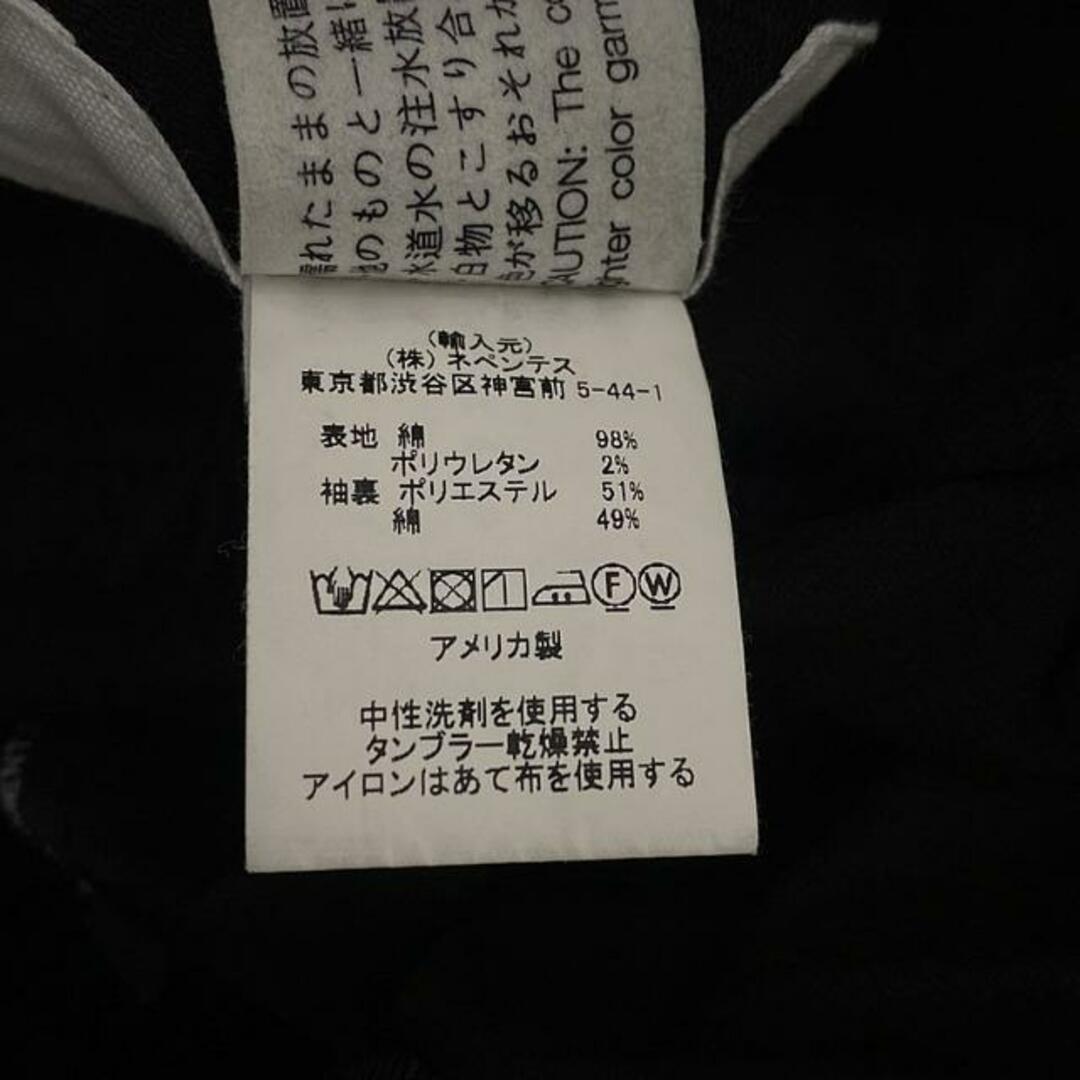 れたままの放置
のものと一緒に
水道水の注水放
白物とこすり合
色が移るおそれが
CAUTION: The co
ghter color garm
(輸入元)
(株)ネペンテス
東京都渋谷区神宮前 5-44-1
表地 綿 98%
ポリウレタン 2%
袖裏 ポリエステル 51%
綿 49%
F W
アメリカ製
中性洗剤を使用する
タンブラー乾燥禁止
アイロンはあて布を使用する